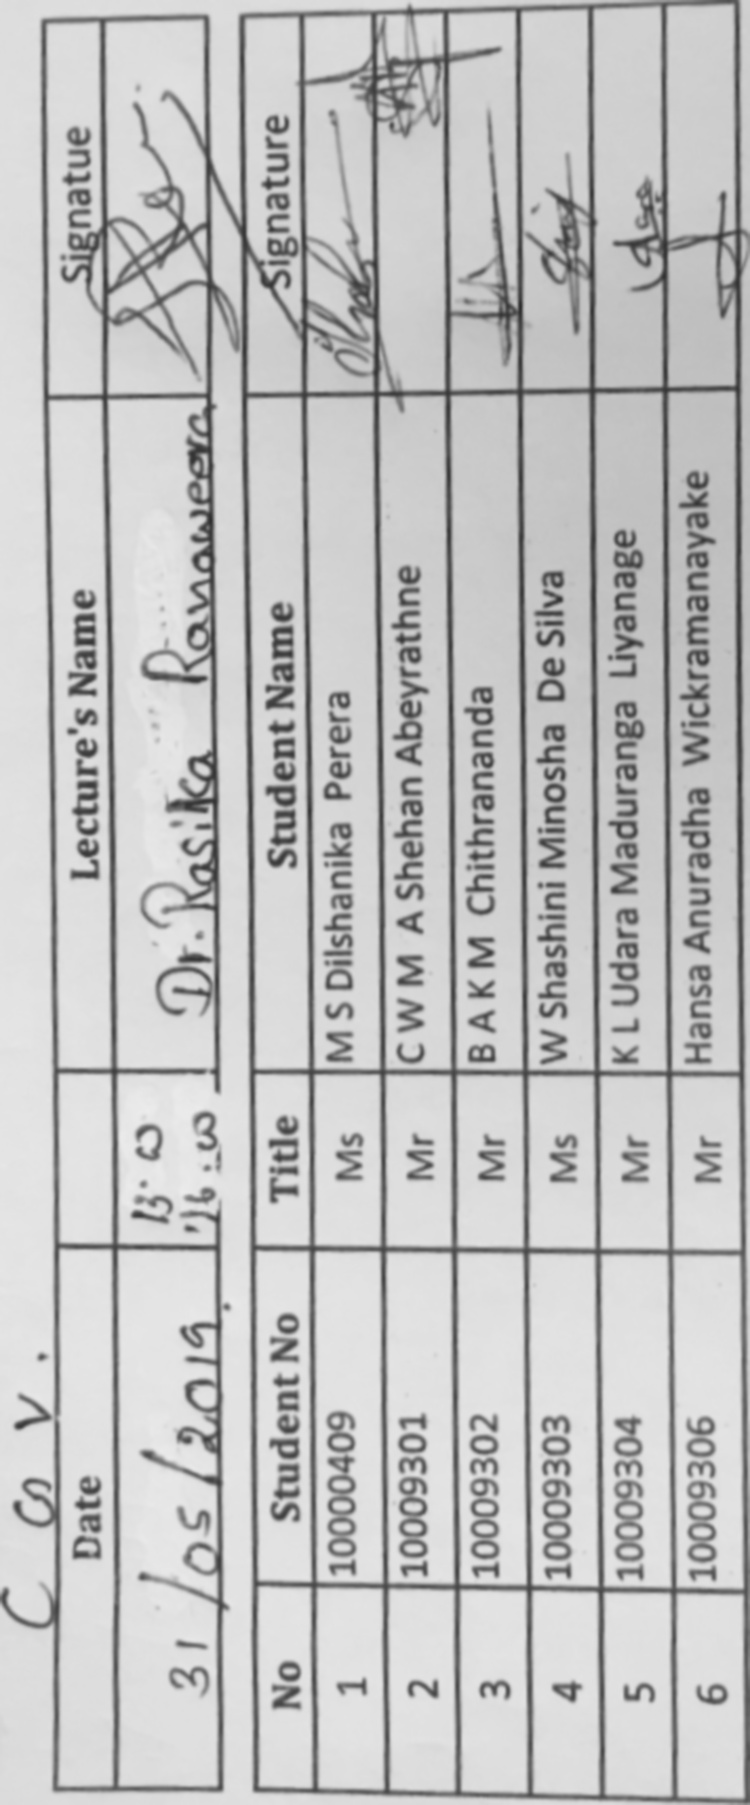 C G V .
Date Lecture's Name Signatue
31/05/2019. 13.00 Dr. Rasika Ranaweera
16.00
No Student No Title Student Name Signature
1 10000409 Ms M S Dilshanika Perera
2 10009301 Mr C W M A Shehan Abeyrathne
3 10009302 Mr B A K M Chithrananda
4 10009303 Ms W Shashini Minosha De Silva
5 10009304 Mr K L Udara Maduranga Liyanage
6 10009306 Mr Hansa Anuradha Wickramanayake